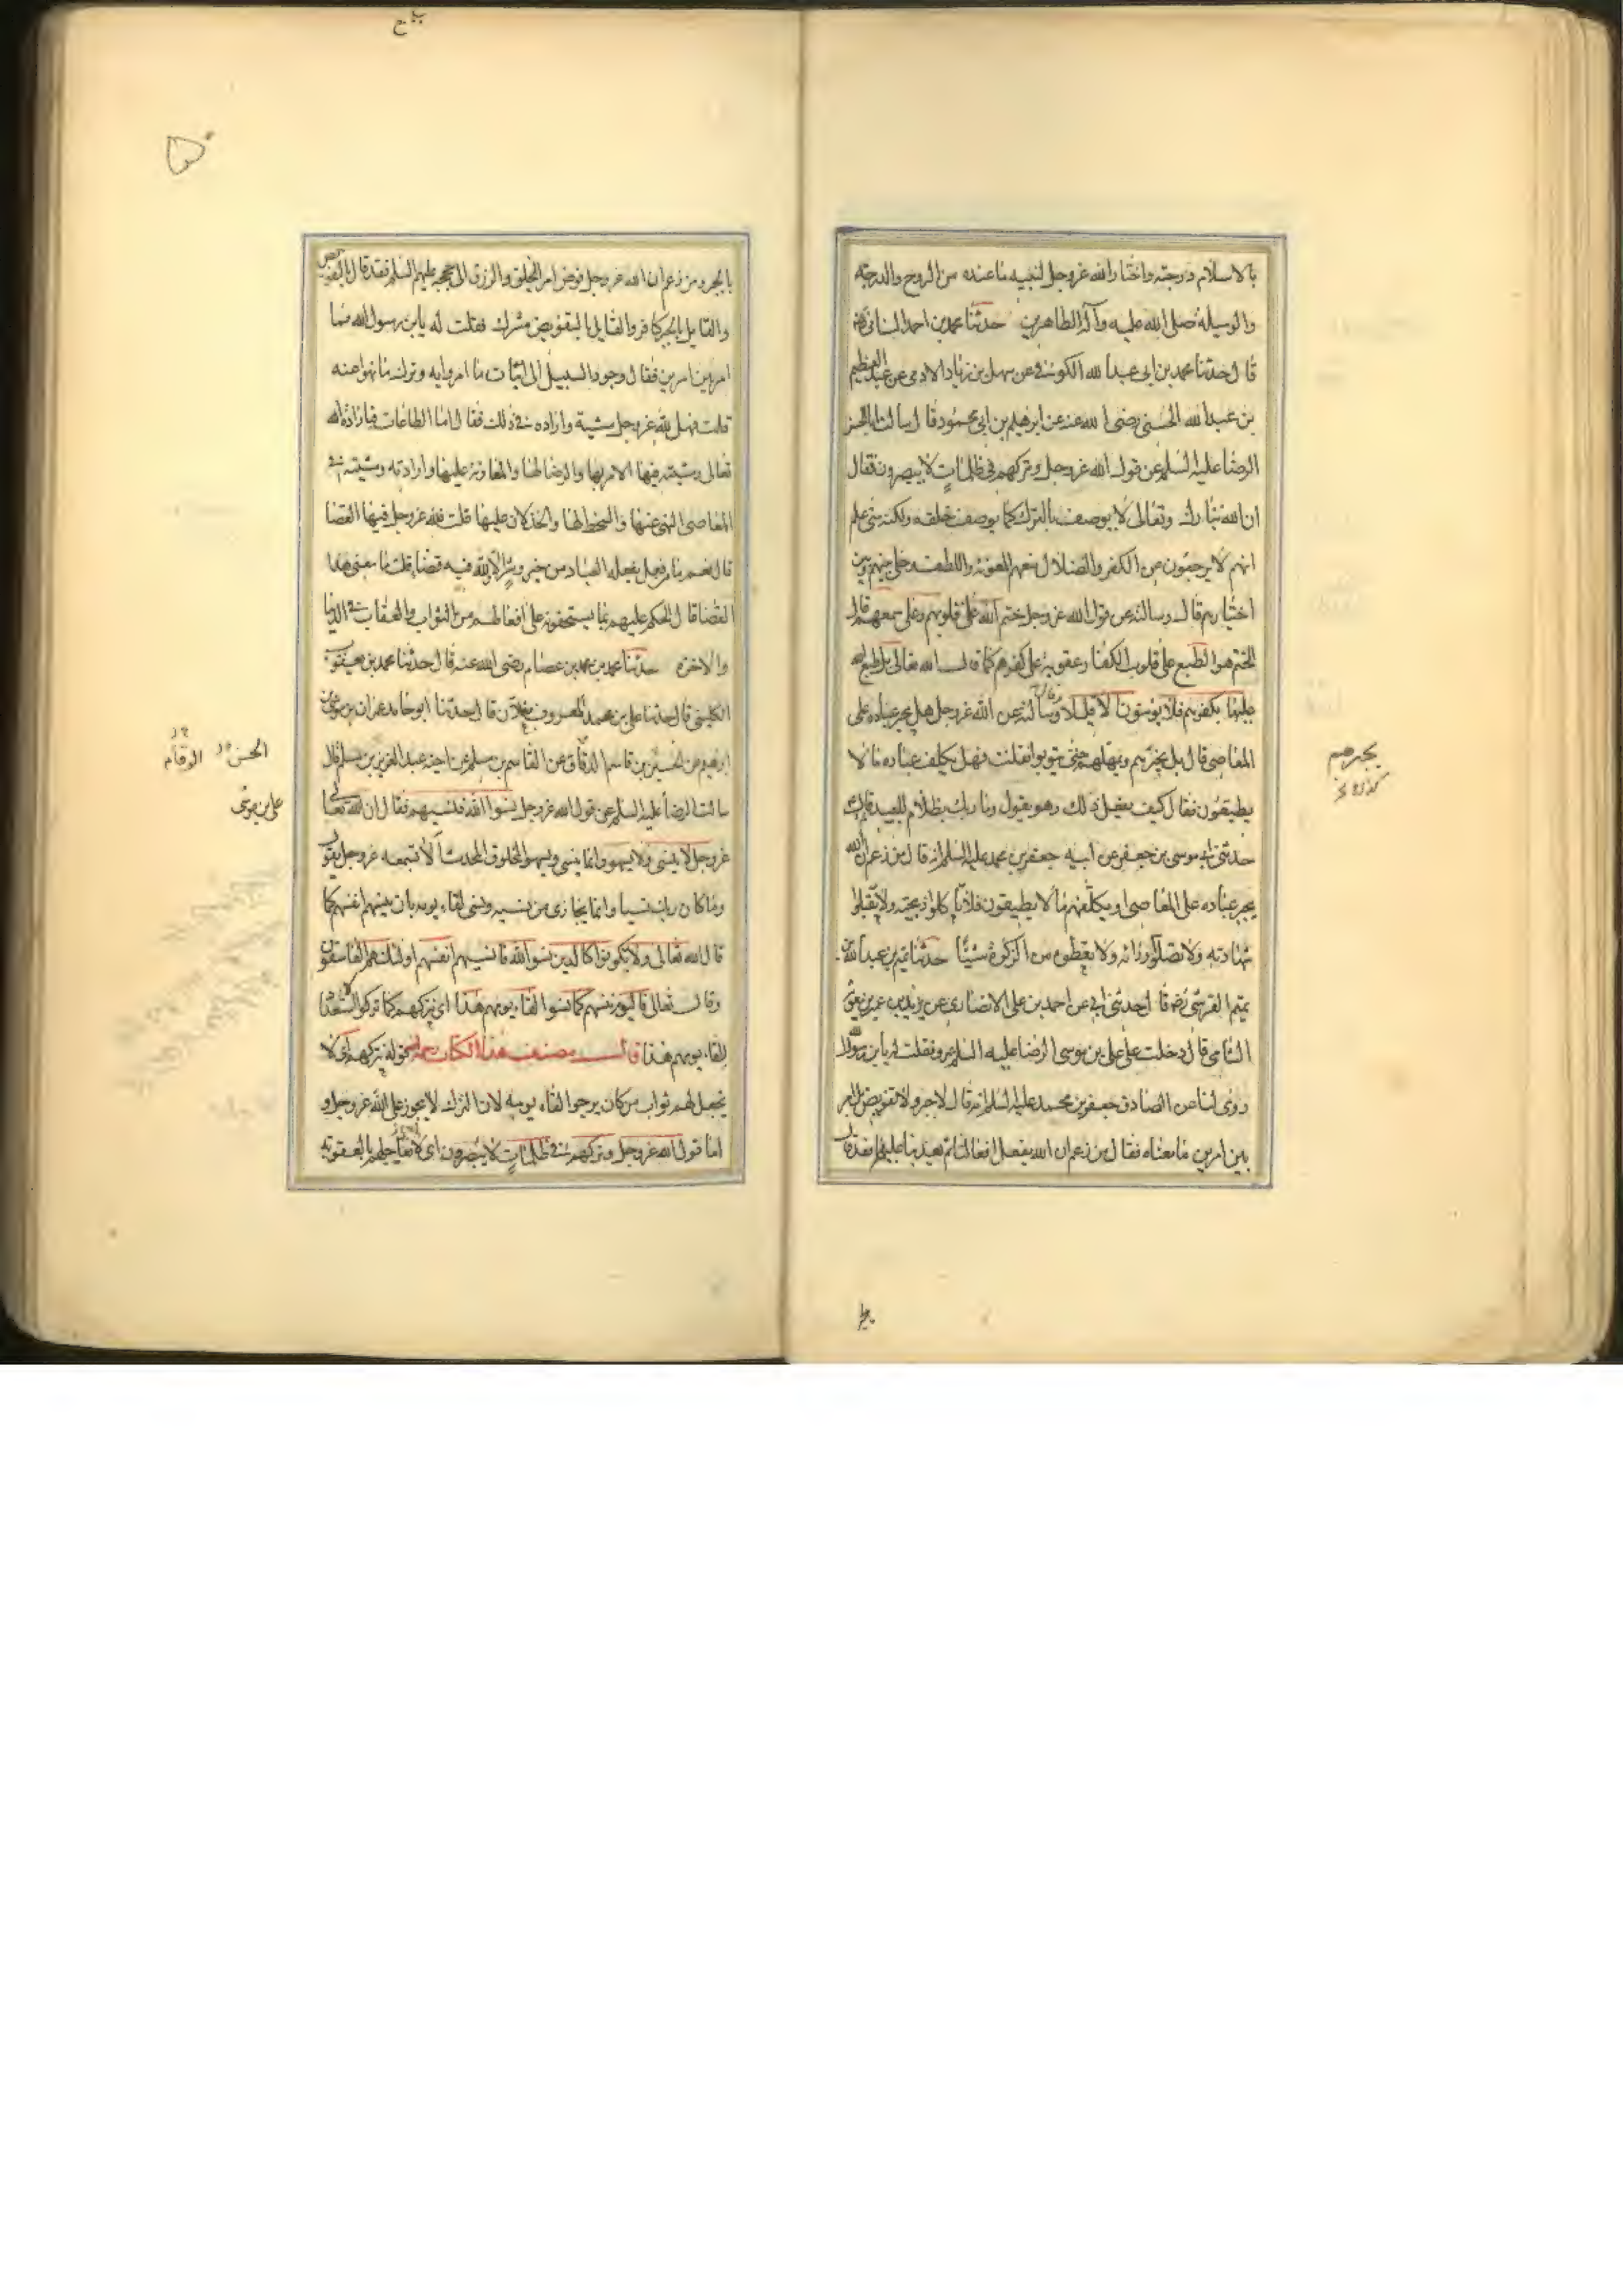 بالاسلام ودرجته واختار الله عزوجل لنبيه ما عنده من الروح والدرجة
والوسيلة صلى الله عليه وآله الطاهرين حدثنا محمد بن احمد السناني
قال حدثنا محمد بن ابي عبد الله الكوفي عن سهل بن زياد الادمي عن عبد العظيم
بن عبد الله الحسني رضى الله عنه عن ابرهيم بن ابي محمود قال سالت ابا الحسن
الرضا عليه السلم عن قول الله عزوجل وتركهم في ظلمات لا يبصرون فقال
ان الله تبارك وتعالى لا يوصف بالترك كما يوصف خلقه ولكنه متى علم
انهم لا يرجعون عن الكفر والضلال منعهم المعونة واللطف وخلى بينهم وبين
اختيارهم قال وسالته عن قول الله عزوجل ختم الله على قلوبهم وعلى سمعهم قال
الختم هو الطبع على قلوب الكفار عقوبة على كفرهم كما قال الله تعالى بل طبع الله
عليها بكفرهم فلا يؤمنون الا قليلا وسالته عن الله عزوجل هل يجبر عباده على
المعاصي قال بل يخيرهم ويمهلهم حتى يتوبوا فقلت فهل يكلف عباده ما لا
يطيقون فقال كيف يفعل ذلك وهو يقول وما ربك بظلام للعبيد قال
حدثني ابي موسى بن جعفر عن ابيه جعفر بن محمد عليه السلم انه قال من زعم ان الله
يجبر عباده على المعاصي او يكلفهم ما لا يطيقون فلا تاكلوا ذبيحته ولا تقبلوا
شهادته ولا تصلوا ورائه ولا تعطوه من الزكوة شيئا حدثنا تميم بن عبد الله بن
تميم القرشي رضه قال حدثني ابي عن احمد بن على الانصاري عن يزيد بن عمير بن معوية
الشامي قال دخلت على على بن موسى الرضا عليه السلم بمرو فقلت له يا بن رسول الله
روى لنا عن الصادق جعفر بن محمد عليه السلم انه قال لا جبر ولا تفويض بل امر
بين امرين ما معناه فقال من زعم ان الله يفعل افعالنا ثم يعذبنا عليها فقد قال
يجبرهم
بالجبر ومن زعم ان الله عزوجل فوض امر الخلق والرزق الى حججه عليهم السلم فقد قال بالتفويض
والقايل بالجبر كافر والقايل بالتفويض مشرك فقلت له يا بن رسول الله فما
امر بين امرين فقال وجود السبيل الى اتيان ما امروا به وترك ما نهوا عنه
قلت فهل لله عزوجل مشية وارادة في ذلك فقال اما الطاعات فارادة الله
تعالى ومشيته فيها الامر بها والرضا لها والمعاونة عليها وارادته ومشيته في
المعاصي النهي عنها والسخط لها والخذلان عليها قلت فلله عزوجل فيها القضا
قال نعم ما من فعل يفعله العباد من خير وشر الا ولله فيه قضا قلت ما معنى هذا
القضا قال الحكم عليهم بما يستحقونه على افعالهم من الثواب والعقاب في الدنيا
والاخرة حدثنا محمد بن محمد بن عصام رضى الله عنه قال حدثنا محمد بن يعقوب
الكليني قال حدثنا على بن محمد المعروف بعلان قال حدثنا ابو حامد عمران بن موسى بن
ابرهيم عن الحسين بن قاسم الدقاق عن القاسم بن مسلم عن اخيه عبد العزيز بن مسلم قال
سالت الرضا عليه السلم عن قول الله عزوجل نسوا الله فنسيهم فقال ان الله تعالى
عزوجل لا ينسى ولا يسهو وانما ينسى ويسهو المخلوق المحدث الا تسمعه عزوجل يقول
وما كان ربك نسيا وانما يجازى من نسيه ونسى لقاء يومه بان ينسيهم انفسهم كما
قال الله تعالى ولا تكونوا كالذين نسوا الله فانسيهم انفسهم اولئك هم الفاسقون
وقال تعالى فاليوم ننسيهم كما نسوا لقاء يومهم هذا اي نتركهم كما تركوا الاستعداد
للقاء يومهم هذا قال مصنف هذا الكتاب رحمه الله قوله نتركهم اي لا
نجعل لهم ثواب من كان يرجوا لقاء يومه لان الترك لا يجوز على الله عزوجل و
اما قول الله عزوجل وتركهم في ظلمات لا يبصرون اي لا يعاجلهم بالعقوبة
الحسن
على بن موسى